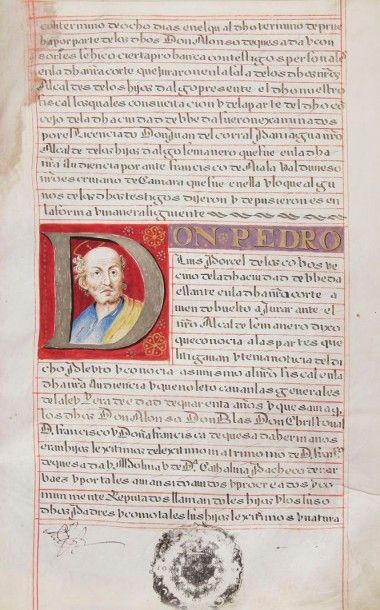 con termino de ocho dias en el qual dho termino de prue
ba por parte de los dhos Don Alonso de quesada y con
sortes se hiço cierta probança con testigos personales
en la dha nra corte que juraron en la sala de los dhos nros
Alcaldes de los hijos dalgo presente el dho nuestro
fiscal los quales con su citacion y de la parte del dho co
cejo de la dha ciudad de Vbeda fueron examinados
por el licenciado Don Juan del corral Paniagua nro
Alcalde de los hijos dalgo semanero que fue en la dha
nra Audiencia por ante Francisco de Ayala Valdivieso
nro escrivano de Camara que fue en ella y lo que algu
nos de los dhos testigos dijeron y depusieron es en
la forma y manera siguiente
DON PEDRO
Luis Porcel de los cobos ve
cino de la dha ciudad de Vbeda
estante en la dha nra corte a
viendo buelto a jurar ante el
nro Alcalde semanero dixo
que conocia a las partes que
litigavan y tenia noticia del di
cho pleyto y conocia asimismo al nro fiscal en la
dha nra Audiencia y que no le tocavan las generales
de la ley y era de edad de quarenta años y que savia q
los dhos Don Alonso Don Blas Don Christoval
D. Francisco y Doña Francisca de quesada hermanos
eran hijos lexitimos de lexitimo matrimonio de D. Fran
de quesada y Molina y de Da Cathalina Pacheco de nar
vaez y por tales avian sido avidos y procreados y co
munmente Reputados llamandoles hijos y los suso
dhos Padres y como tales sus hijos lexitimos y natura